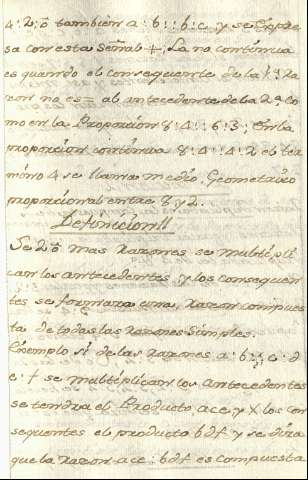 4: 2: ó tambien a: 6:: b: c, y se Expre
sa con esta Señal ÷; La no continua
es quando el consequente de la 1ª Ra
zon no es = al antecedente de la 2ª co
mo en la Proporcion 8: 4:: 6: 3; En la
proporcion continua 8: 4:: 4: 2 el ter
mino 4 se llama medio Geometrico
proporcional entre 8 y 2.
Definicion 11
Si 2 ó mas razones se multipli
can los antecedentes y los consequen
tes se formara una razon compues
ta de todas las razones simples.
Exemplo si de las razones a: b; c: d
e: f se multiplican los antecedentes
se tendra el Producto, ace, y X los con
sequentes el producto bdf y se dira
que la razon ace: bdf es compuesta